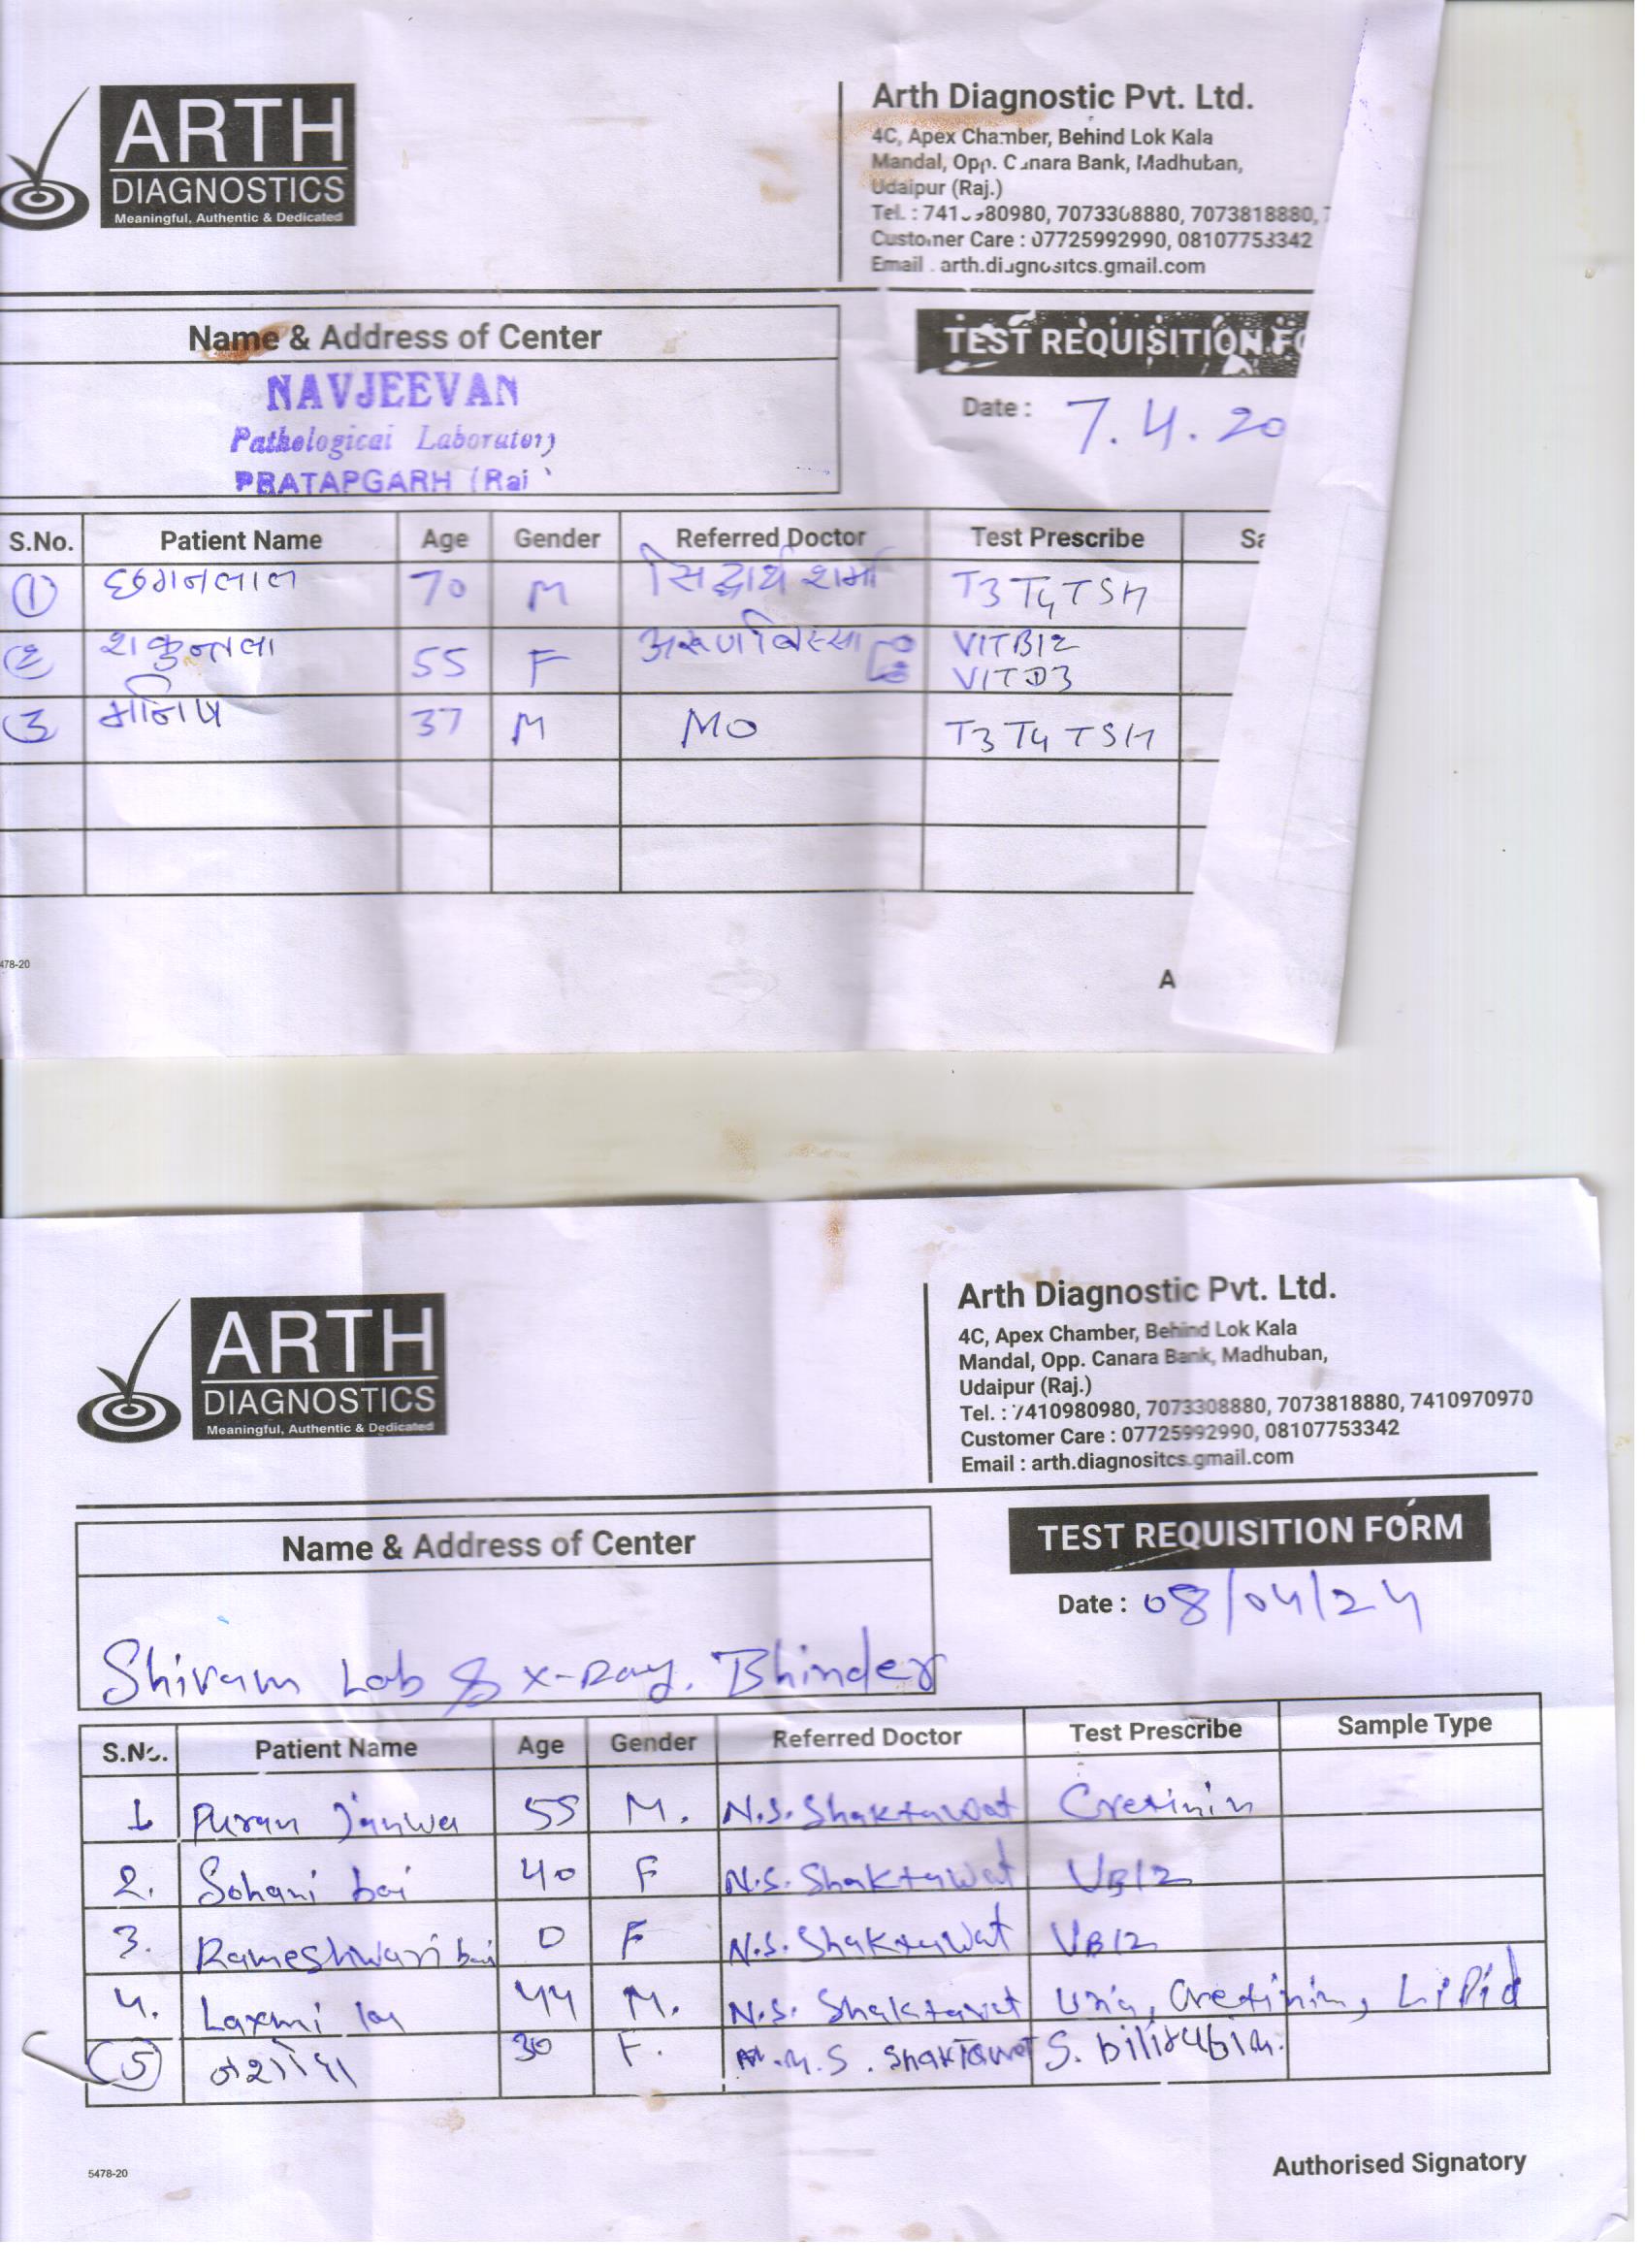 ARTH
DIAGNOSTICS
Meaningful, Authentic & Dedicated
Arth Diagnostic Pvt. Ltd.
4C, Apex Chamber, Behind Lok Kala
Mandal, Opp. Canara Bank, Madhuban,
Udaipur (Raj.)
Tel. : 7073308880, 7073818880,
Customer Care : 07725992990, 08107753342
Email arth.diagnositcs.gmail.com
Name & Address of Center
TEST REQUISITION FO
NAVJEEVAN
Pathological Laboratory
PRATAPGARH (Raj
Date : 7.4.20
S.No. Patient Name Age Gender Referred Doctor Test Prescribe Sa
1 छगनलाल 70 M सिद्धार्थ शर्मा T3 T4 TSH
2 शकुन्तला 55 F VITB12
VITD3
3 मनिष 37 M MO T3 T4 TSH
478-20
A
ARTH
DIAGNOSTICS
Meaningful, Authentic & Dedicated
Arth Diagnostic Pvt. Ltd.
4C, Apex Chamber, Behind Lok Kala
Mandal, Opp. Canara Bank, Madhuban,
Udaipur (Raj.)
Tel. : 7410980980, 7073308880, 7073818880, 7410970970
Customer Care : 07725992990, 08107753342
Email : arth.diagnositcs.gmail.com
Name & Address of Center
TEST REQUISITION FORM
Date : 08/04/24
Shivam Lab & X-Ray. Bhinder
S.No. Patient Name Age Gender Referred Doctor Test Prescribe Sample Type
1 Puran Janwa 55 M. N.S. Shaktawat Cretinin
2. Sohani bai 40 F N.S. Shaktawat VB12
3. Rameshwari bai 0 F N.S. Shaktawat VB12
4. Laxmi lal 44 M. N.S. Shaktawat Cretinin, Lipid
5 30 F. S. Shaktawat S. bilirubin.
5478-20
Authorised Signatory